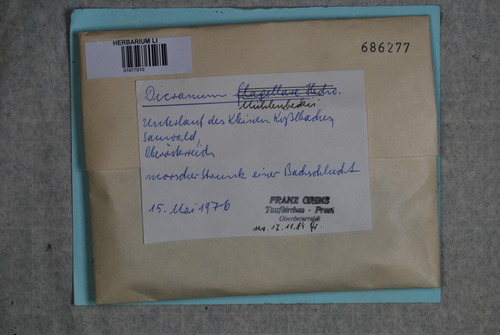 HERBARIUM LI
01577010
686277
Dicranum flagellare Hedw.
Muhlenbeckii
Unterlauf des Kleinen Kößlbaches,
Sauwald,
Oberösterreich
morscher Strunk einer Bachschlucht
15. Mai 1976
FRANZ GRIMS
Taufkirchen - Pram
Oberösterreich
rev. 17.11.84 Gr.